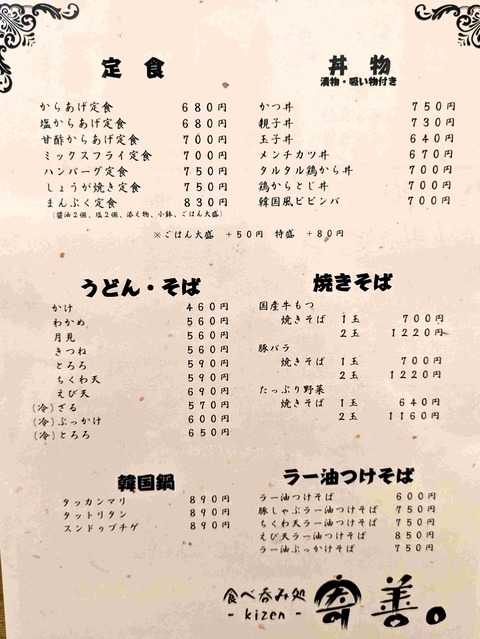 定食
からあげ定食 680円
塩からあげ定食 680円
甘酢からあげ定食 700円
ミックスフライ定食 700円
ハンバーグ定食 750円
しょうが焼き定食 750円
まんぷく定食 830円
(醤油2個、塩2個、添え物、小鉢、ごはん大盛)
丼物
漬物・吸い物付き
かつ丼 750円
親子丼 730円
玉子丼 640円
メンチカツ丼 670円
タルタル鶏から丼 700円
鶏からとじ丼 700円
韓国風ビビンバ 700円
※ごはん大盛 +50円 特盛 +80円
うどん・そば
かけ 460円
わかめ 560円
月見 560円
きつね 560円
とろろ 590円
ちくわ天 590円
えび天 690円
(冷)ざる 570円
(冷)ぶっかけ 600円
(冷)とろろ 650円
焼きそば
国産牛もつ
焼きそば 1玉 700円
2玉 1220円
豚バラ
焼きそば 1玉 700円
2玉 1220円
たっぷり野菜
焼きそば 1玉 640円
2玉 1160円
韓国鍋
タッカンマリ 890円
タットリタン 890円
スンドゥブチゲ 890円
ラー油つけそば
ラー油つけそば 600円
豚しゃぶラー油つけそば 750円
ちくわ天ラー油つけそば 750円
えび天ラー油つけそば 850円
ラー油ぶっかけそば 750円
食べ呑み処
- kizen -
寄善。